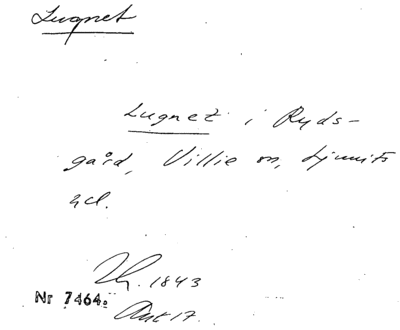 Lugnet
Lugnet i Ryds-
gård, Villie sn, Ljunits
hd.
1843
Nr 7464.
Akt 17.